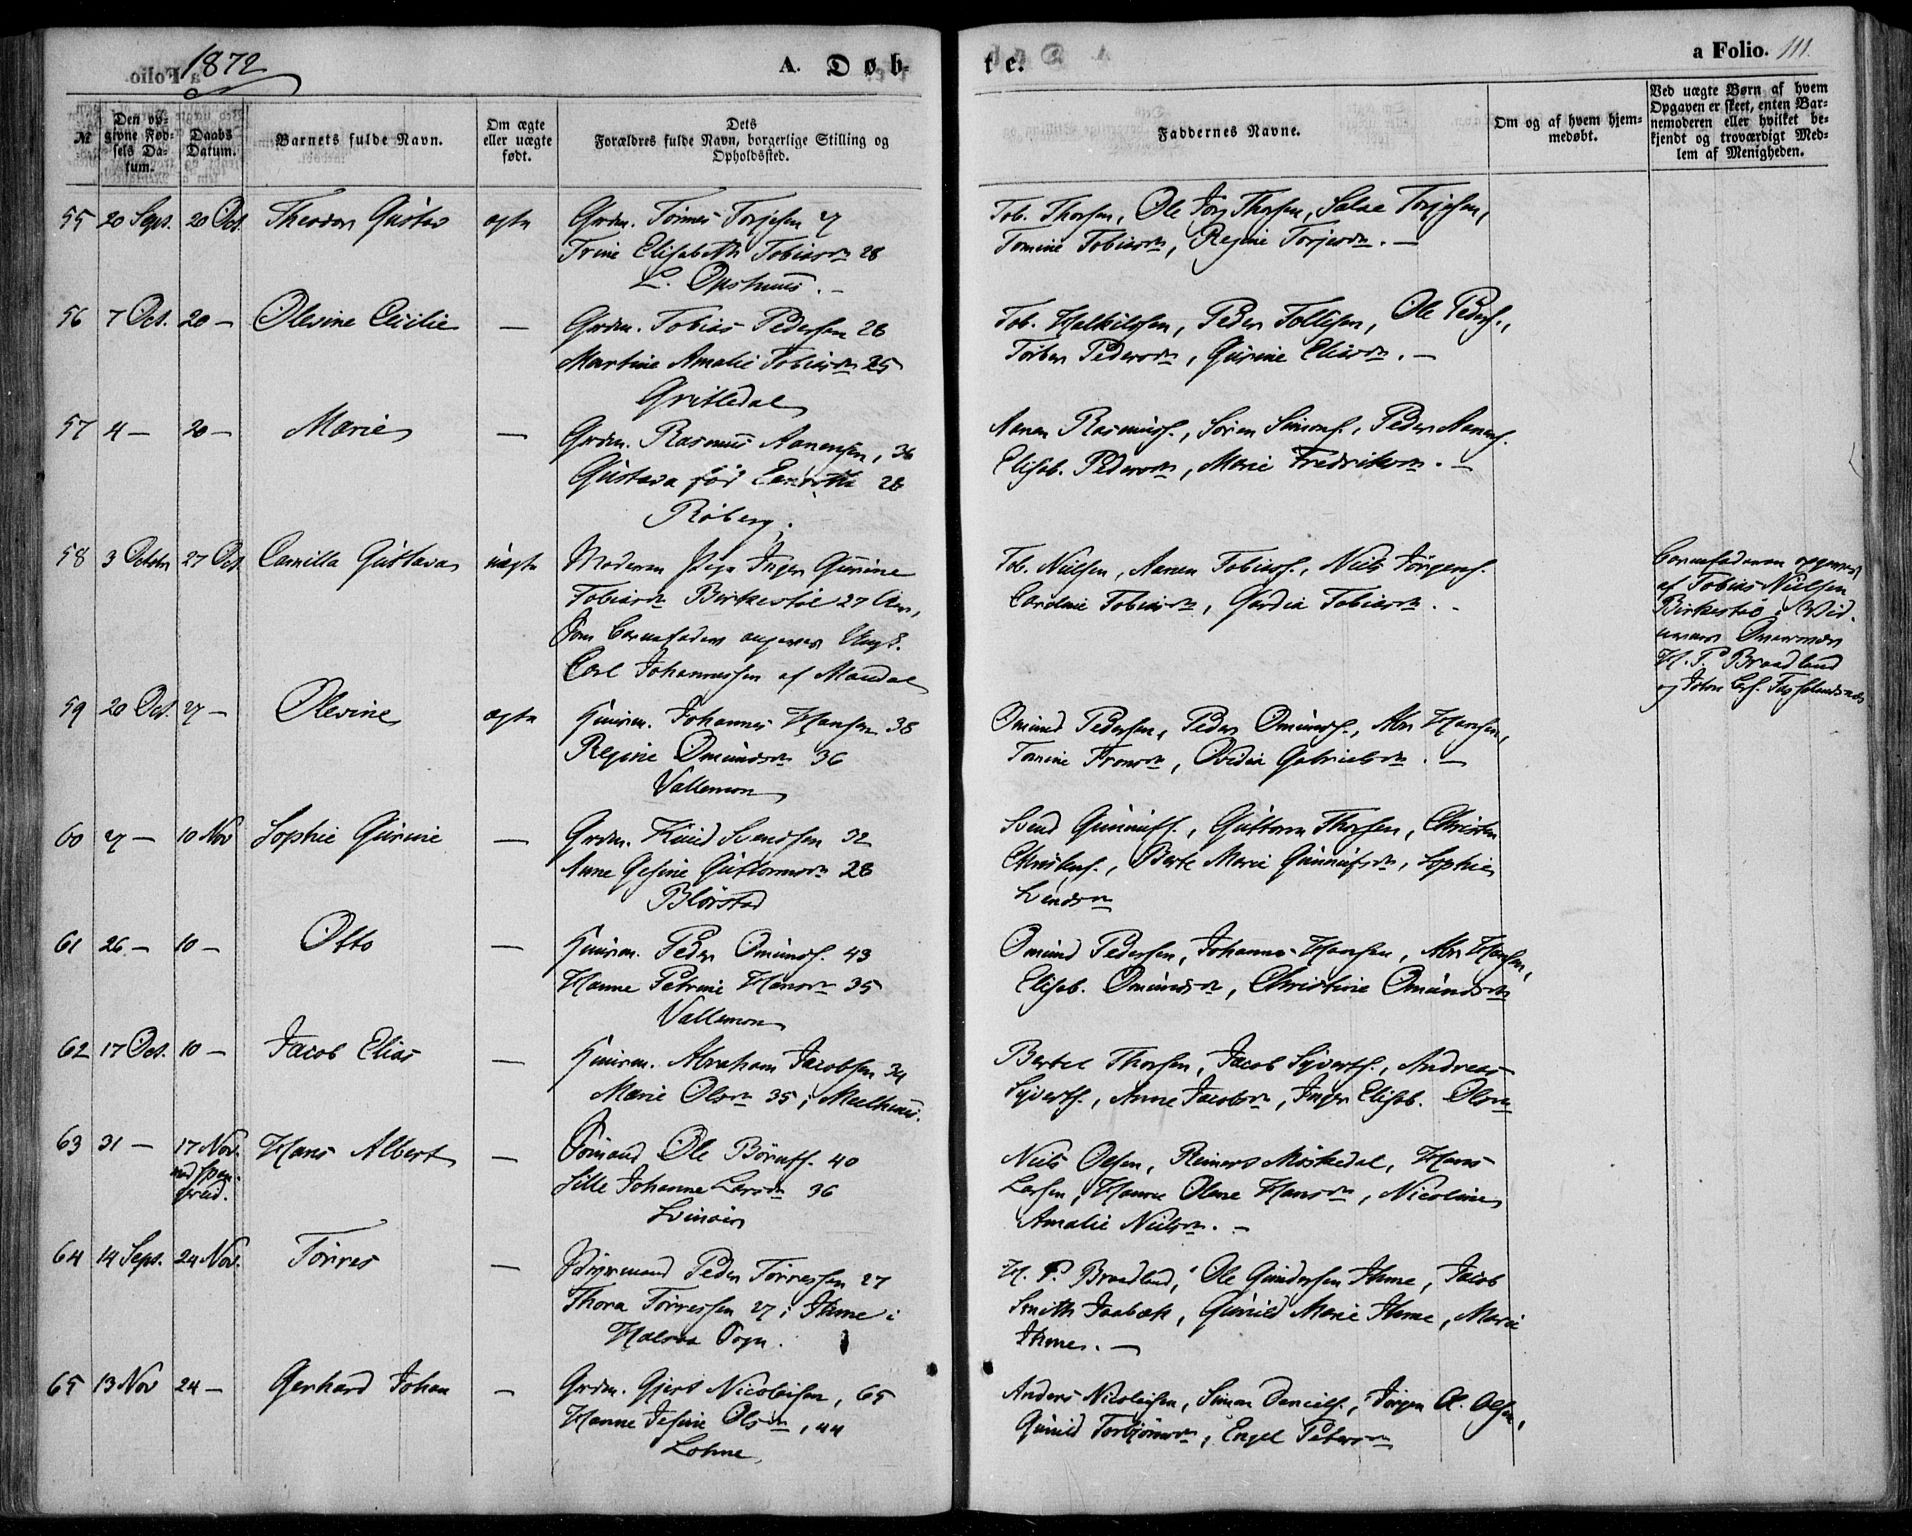 1872
A. Døb-
te.
a Folio. 111.
№
Den op-
givne Fød-
sels Da-
tum.
Daabs
Datum.
Barnets fulde Navn.
Om ægte
eller uægte
født.
Dets
Forældres fulde Navn, borgerlige Stilling og
Opholdssted.
Faddernes Navne.
Om og af hvem hjem-
medøbt.
Ved uægte Børn af hvem
Opgaven er skeet, enten Bar-
nemoderen eller hvilket be-
kjendt og troværdigt Med-
lem af Menigheden.
55 20 Sept. 20 Oct. Theodor Gustav ægte Grdm. Tørres Torjesen 27
Trine Elisabeth Tobiasdn 28
L. Opshuus. -
Tob. Thorsen, Ole Jørg Thorsen, Salve Torjesen,
Tomine Tobiasdn, Regine Torjesdn. -
56 7 Oct. 20 - Olevine Cecilie - Grdm. Tobias Pedersen 26
Martine Amalie Tobiasdn 25
Tob. Halkilsen, Peder Tollisen, Ole Peders.,
Torber Pedersdn, Gurine Eliasdn. -
57 4 - 20 - Marie - Grdm. Rasmus Aanensen, 36
Gustava fød 28
Røberg.
Aanen Rasmuss., Søren Simons., Peder Aanens.
Elisab. Pedersdn, Marie Fredriksdn. -
58 3 Octobr 27 Oct Camilla Gustava uægte Moderen Pige Inger Gurine
Tobiasdn Birkestøl 27 Aar,
Som Barnefader angives Ungk.
Carl Johannessen af Mandal
Tob. Nielsen, Aanen Tobiass., Niels Jørgens.
Caroline Tobiasdn, Tobiasdn. -
Barnefaderen opgivet
af Tobias Nielsen
Birkestøl; Vid-
H. P. Braadland
og
59 20 Oct. 27 - Olevine ægte Huusm. Johannes Hansen 38
Regine Omundsdn 36
Vallemon
Omund Pedersen, Peder Omunds., Abr Hansen,
Tomine , Ovidia Gabrielsdn. -
60 27 - 10 Nov Sophie Gurine - Grdm. Knud Svendsen 32
Anne Gesine Guttormsdn 28
Blørstad
Svend Gunnufs., Guttorm Thorsen, Christen
Christens., Berte Marie Gunnufsdn, Sophie
Svendsdn
61 26 - 10 - Otto - Huusm. Peder Omunds. 43
Hanne Petrine Hansdn 35
Vallemon
Omund Pedersen, Johannes Hansen, Abr Hansen,
Elisab. Omundsdn, Christine Omundsdn
62 17 Oct. 10 - Jacob Elias - Huusm. Abraham Jacobsen 34
Marie Olsdn 35; Meelhuus.
Bertel Thorsen, Jacob Syverts., Andreas
Syverts., Anne Jacobsdn, Inger Elisab. Olsdn
63 31 - 17 Nov. Hans Albert - Sømand Ole Børufs. 40
Sille Johanne Larsdn 36
Svinøer
Niels Olsen, Reinert Møskedal, Hans
Larsen, Olene Hansdn, Nicoline
Amalie Nielsdn. -
64 14 Sept. 24 Nov. Tørres - Styrmand Peder Tørressen 27
Thora Tørressen 27; Ihme i
Halsaa Sogn.
H. P. Braadland, Ole Gundersen Ihme, Jacob
Smith Jaabæk, Gunild Marie Ihme, Marie
Ihme. -
65 13 Nov 24 - Gerhard Johan - Grdm. Gjert Nicolaisen, 65
Hanne Jesine Olsdn, 44
Lohne,
Anders Nicolaisen, Simon Daniels., Jørgen A. Olsen,
Gunild Torbjørnsdn, Engel Petersdn